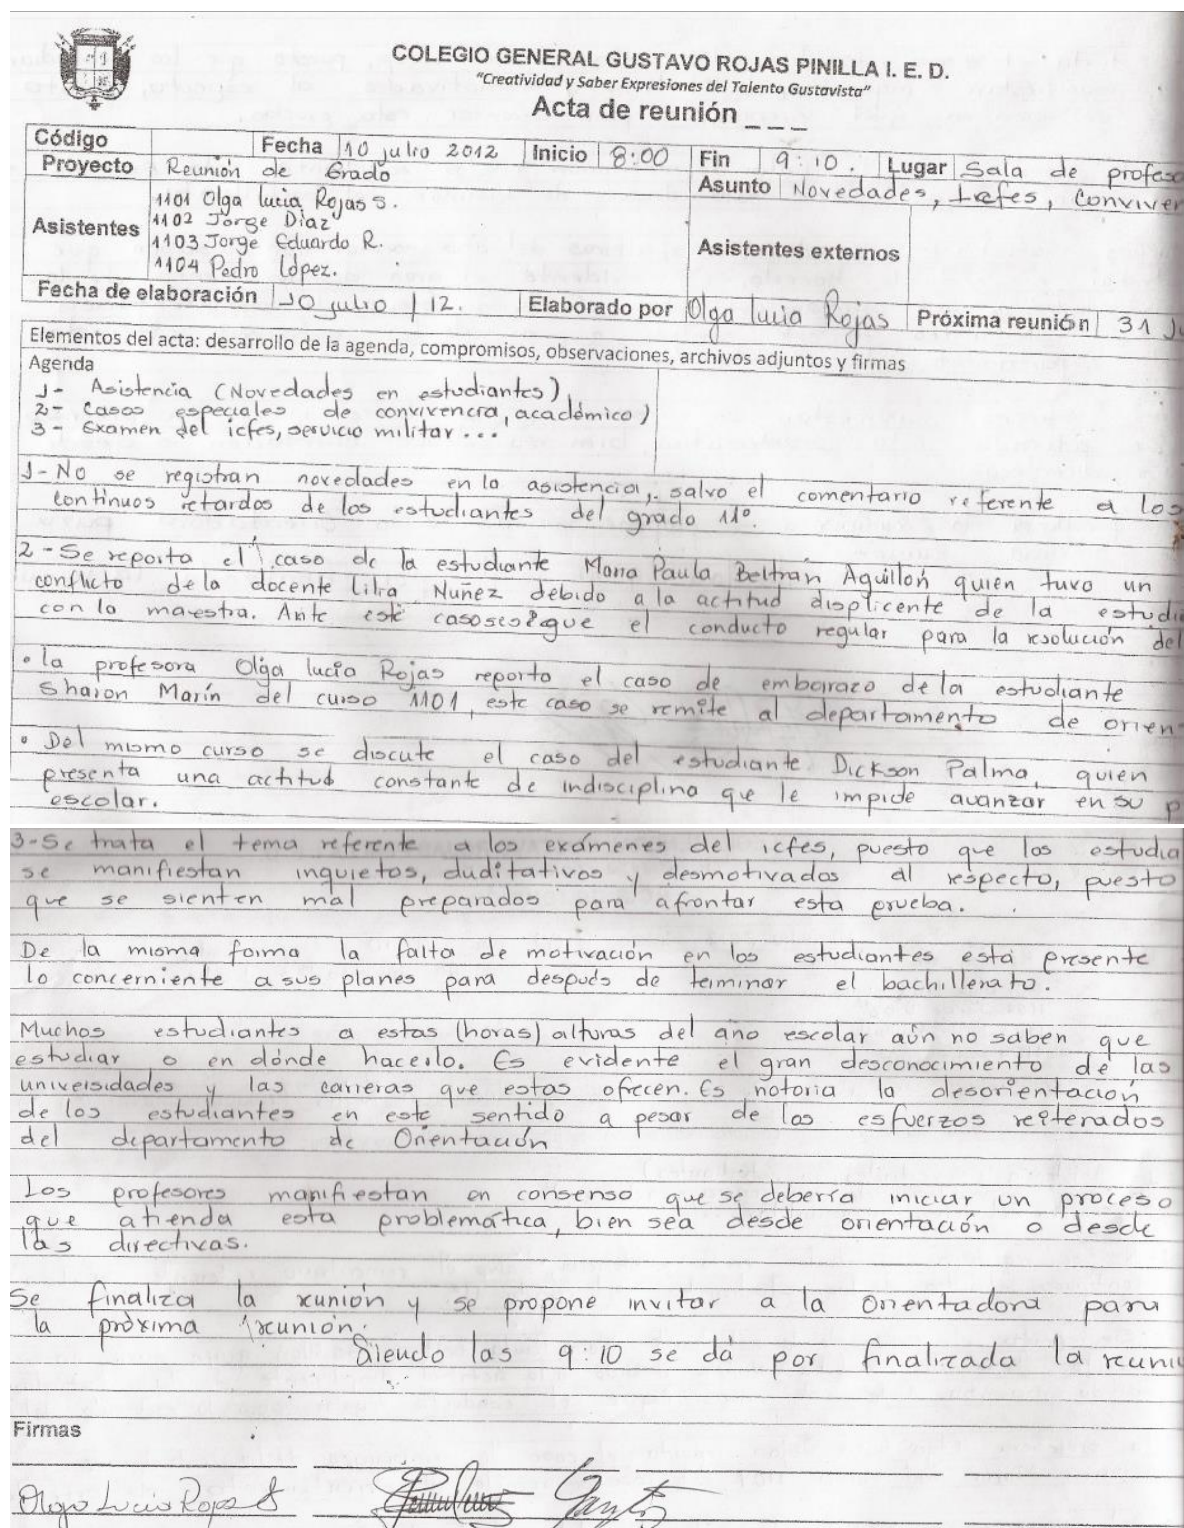 COLEGIO GENERAL GUSTAVO ROJAS PINILLA I. E. D.
"Creatividad y Saber Expresiones del Talento Gustavista"
Acta de reunión _ _ _
Código Fecha 10 julio 2012 Inicio 8:00 Fin 9:10. Lugar Sala de profeso
Proyecto Reunión de Grado Asunto Novedades, Icfes, Conviven
Asistentes
1101 Olga lucia Rojas S.
1102 Jorge Díaz
1103 Jorge Eduardo R.
1104 Pedro López.
Asistentes externos
Fecha de elaboración 10 julio / 12. Elaborado por Olga lucia Rojas Próxima reunión 31 Ju
Elementos del acta: desarrollo de la agenda, compromisos, observaciones, archivos adjuntos y firmas
Agenda
1- Asistencia (Novedades en estudiantes)
2- Casos especiales de convivencia, académico)
3- Examen del icfes, servicio militar...
1-No se registran novedades en la asistencia, salvo el comentario referente a los
continuos retardos de los estudiantes del grado 11º.
2-Se reporta el caso de la estudiante Maria Paula Beltrán Aguillón quien tuvo un
conflicto de la docente Lilia Nuñez debido a la actitud displicente de la estudi
con la maestra. Ante este caso se sigue el conducto regular para la resolución del
• la profesora Olga lucia Rojas reporto el caso de embarazo de la estudiante
Sharon Marín del curso 1101, este caso se remite al departamento de orien
• Del mismo curso se discute el caso del estudiante Dickson Palma, quien
presenta una actitud constante de indisciplina que le impide avanzar en su p
escolar.
3-Se trata el tema referente a los exámenes del icfes, puesto que los estudia
se manifiestan inquietos, duditativos y desmotivados al respecto, puesto
que se sienten mal preparados para afrontar esta prueba.
De la misma forma la falta de motivación en los estudiantes está presente
lo concerniente a sus planes para después de terminar el bachillerato.
Muchos estudiantes a estas (horas) alturas del año escolar aún no saben que
estudiar o en dónde hacerlo. Es evidente el gran desconocimiento de las
universidades y las carreras que estas ofrecen. Es notoria la desorientación
de los estudiantes en este sentido a pesar de los esfuerzos reiterados
del departamento de Orientación
Los profesores manifiestan en consenso que se debería iniciar un proceso
que atienda esta problemática, bien sea desde orientación o desde
las directivas.
Se finaliza la reunión y se propone invitar a la Orientadora para
la próxima reunión.
Siendo las 9:10 se dá por finalizada la reuni
Firmas
Olga Lucia Rojas S